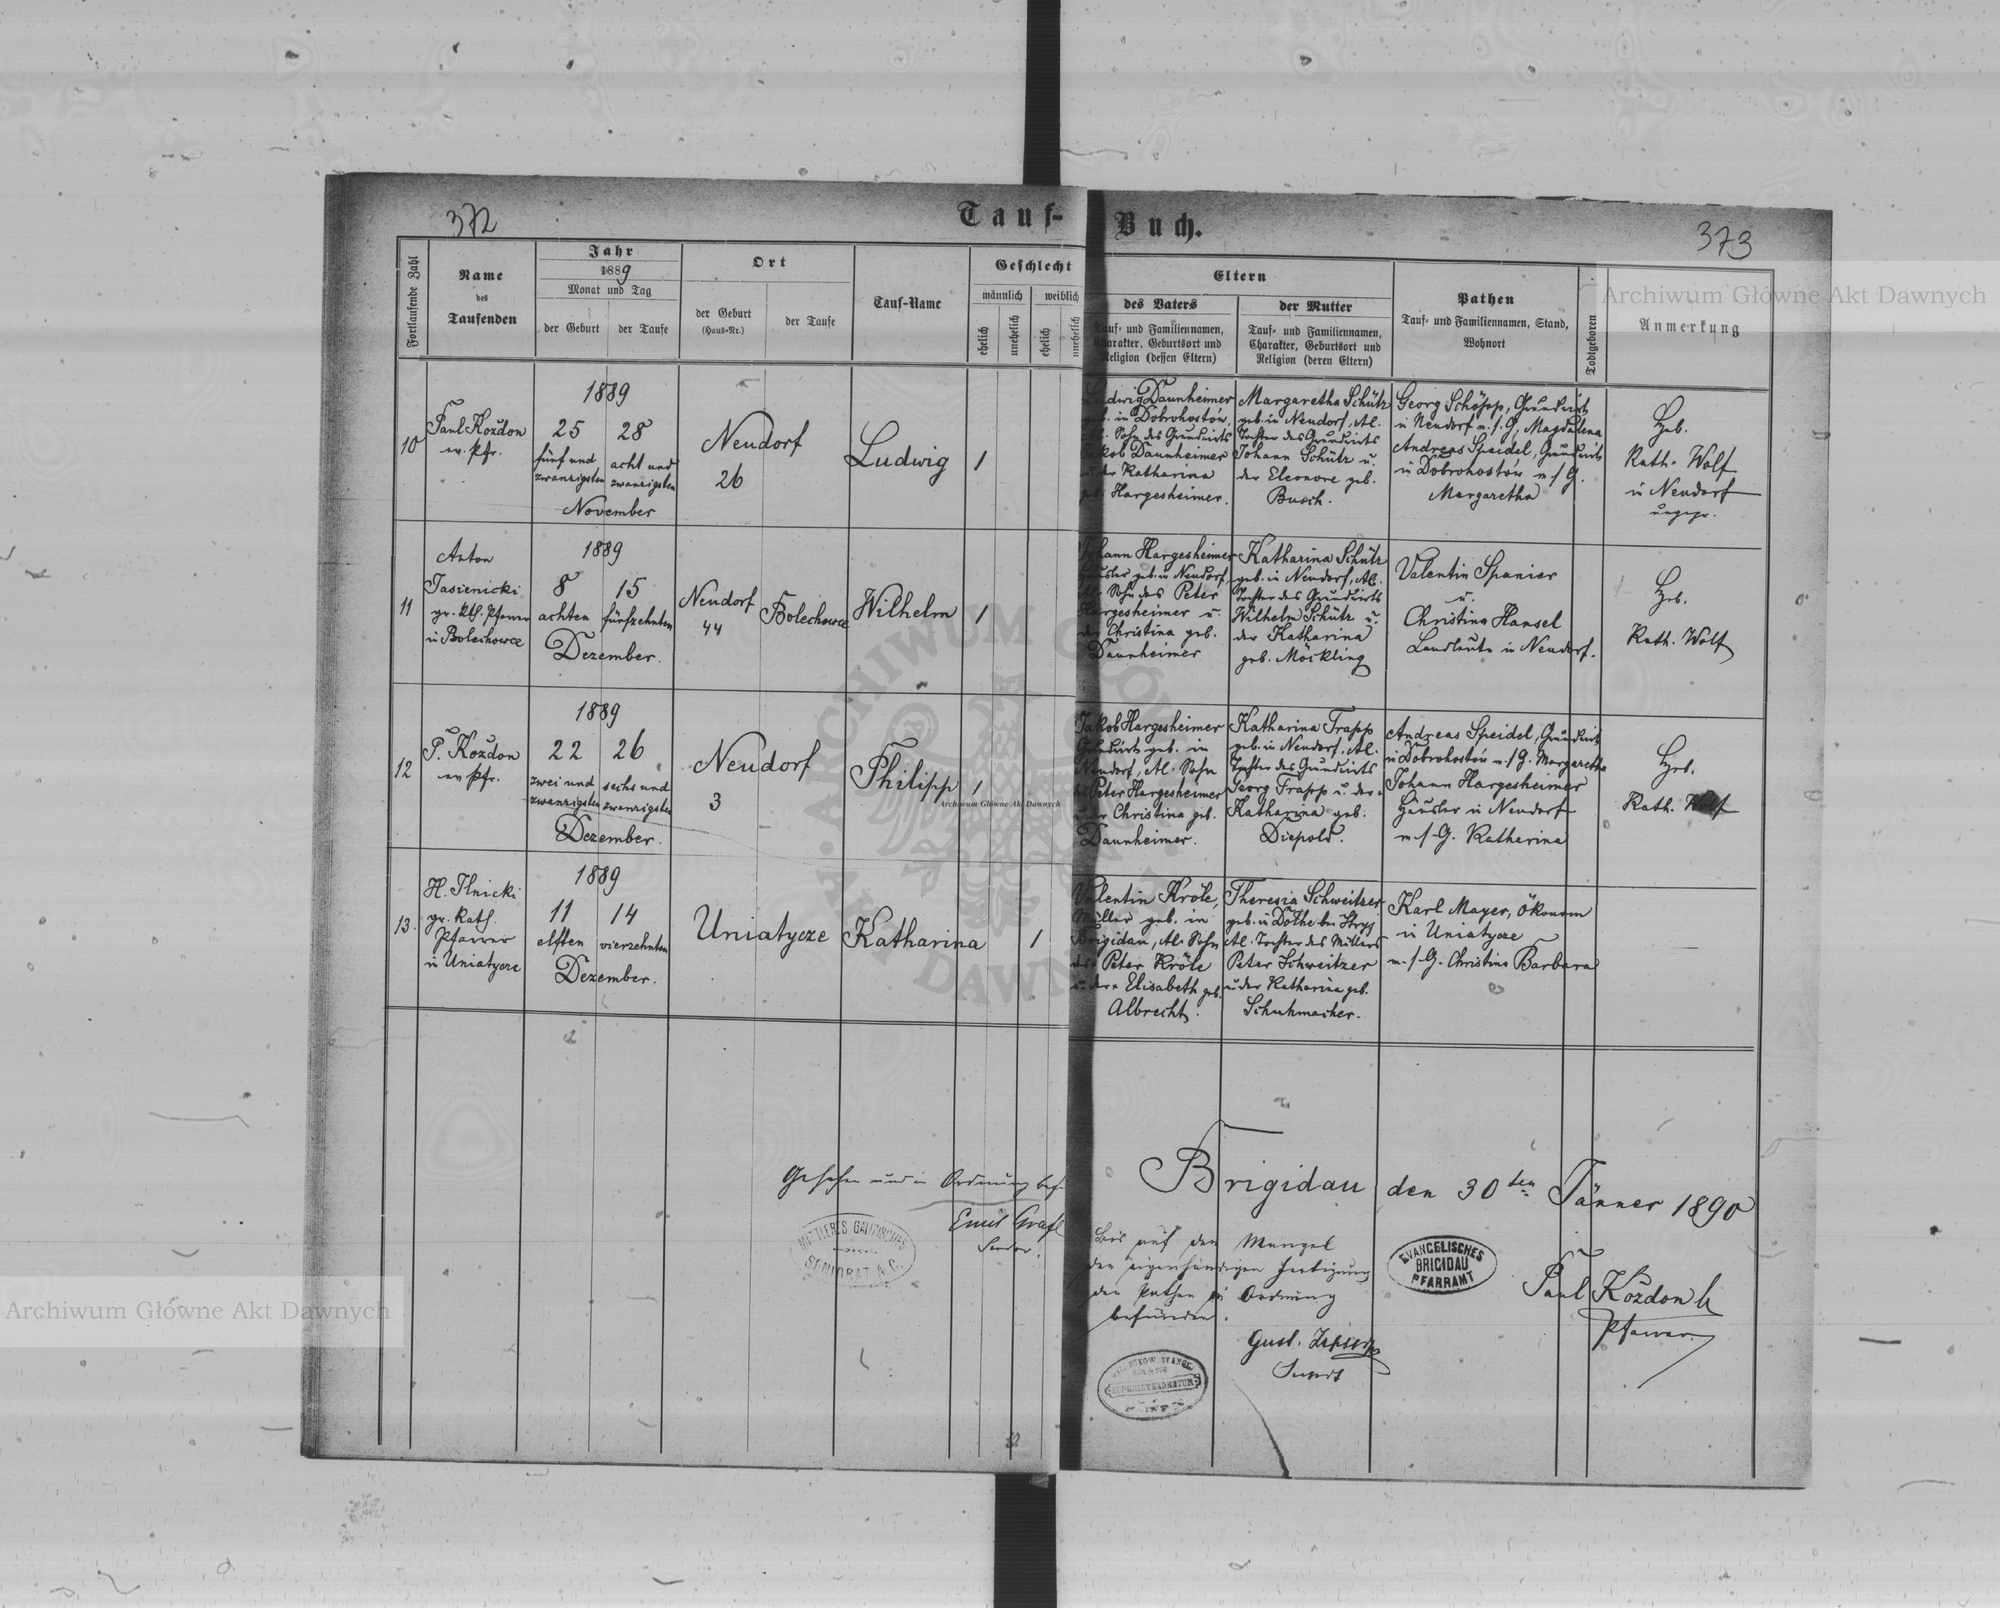 372
Tauf-
Buch.
373
Fortlaufende Zahl
Name
des
Taufenden
Jahr
1889
Monat und Tag
der Geburt
der Taufe
Ort
der Geburt
(Haus-Nr.)
der Taufe
Tauf-Name
Geschlecht
männlich
weiblich
ehelich
unehelich
ehelich
unehelich
Eltern
des Vaters
Tauf- und Familiennamen,
Charakter, Geburtsort und
Religion (dessen Eltern)
der Mutter
Tauf- und Familiennamen,
Charakter, Geburtsort und
Religion (deren Eltern)
Pathen
Tauf- und Familiennamen, Stand,
Wohnort
Todtgeboren
Anmerkung
10
Paul Kozdon
ev. Pfr.
1889
25 28
fünf und
zwanzigsten
acht und
zwanzigsten
November
Neudorf
26
Ludwig
1
Ludwig Daunheimer
geb. in Dobrohostów,
Al. Sohn des Grundwirts
Jakob Daunheimer
u. der Katharina
geb. Hargesheimer.
Margaretha Schütz
geb. in Neudorf, Al.
Tochter des Grundwirts
Johann Schütz u.
der Eleonore geb.
Busch.
Georg Schöpp, Grundwirt
in Neudorf m. s. G. Magdalena
Andreas Speidel, Grundwirt
in Dobrohostów m. s. G.
Margaretha
Heb.
Kath. Wolf
in Neudorf
ungepr.
11
Anton
Jasienicki
gr. kth. Pfarrer
in Bolechowce
1889
8 15
achten fünfzehnten
Dezember.
Neudorf
44
Bolechowce
Wilhelm
1
Johann Hargesheimer
Häusler geb. in Neudorf,
Al. Sohn des Peter
Hargesheimer u.
der Christina geb.
Daunheimer
Katharina Schütz
geb. in Neudorf, Al.
Tochter des Grundwirts
Wilhelm Schütz u.
der Katharina
geb. Möckling
Valentin Spanier
u.
Christina Hansel
Landleute in Neudorf.
Heb.
Kath. Wolf
12
P. Kozdon
ev. Pfr.
1889
22 26
zwei und
zwanzigsten
sechs und
zwanzigsten
Dezember.
Neudorf
3
Philipp
1
Jakob Hargesheimer
Grundwirt geb. in
Neudorf, Al. Sohn
des Peter Hargesheimer
u. der Christina geb.
Daunheimer.
Katharina Trapp
geb. in Neudorf, Al.
Tochter des Grundwirts
Georg Trapp u. der
Katharina geb.
Diepold.
Andreas Speidel, Grundwirt
in Dobrohostów m. s. G. Margaretha
Johann Hargesheimer
Häusler in Neudorf
m. s. G. Katharina
Heb.
Kath. Wolf
13.
H. Ilnicki
gr. kath.
Pfarrer
in Uniatycze
1889
11 14
elften vierzehnten
Dezember.
Uniatycze
Katharina
1
Valentin Kröle,
Müller geb. in
Brigidau, Al. Sohn
des Peter Kröle
u. der Elisabeth geb.
Albrecht.
Theresia Schweitzer
geb. in Dolhe bei Stryj
Al. Tochter des Müllers
Peter Schweitzer
u. der Katharina geb.
Schuhmacher.
Karl Mayer, Ökonom
in Uniatycze
m. s. G. Christine Barbara
Gesehen und in Ordnung bef.
Emil Grafl
Senior.
MITTLERES GALIZISCHES
SENIORAT A.C.
Brigidau den 30ten Jänner 1890
Bis auf den Mangel
der eigenhändigen Fertigung
der Pathen in Ordnung
befunden.
EVANGELISCHES
BRIGIDAU
PFARRAMT
Paul Kozdon
Pfarrer.
SUPERINTENDENTUR
Archiwum Główne Akt Dawnych
Archiwum Główne Akt Dawnych
Archiwum Główne Akt Dawnych
ARCHIWUM GŁÓWNE AKT DAWNYCH